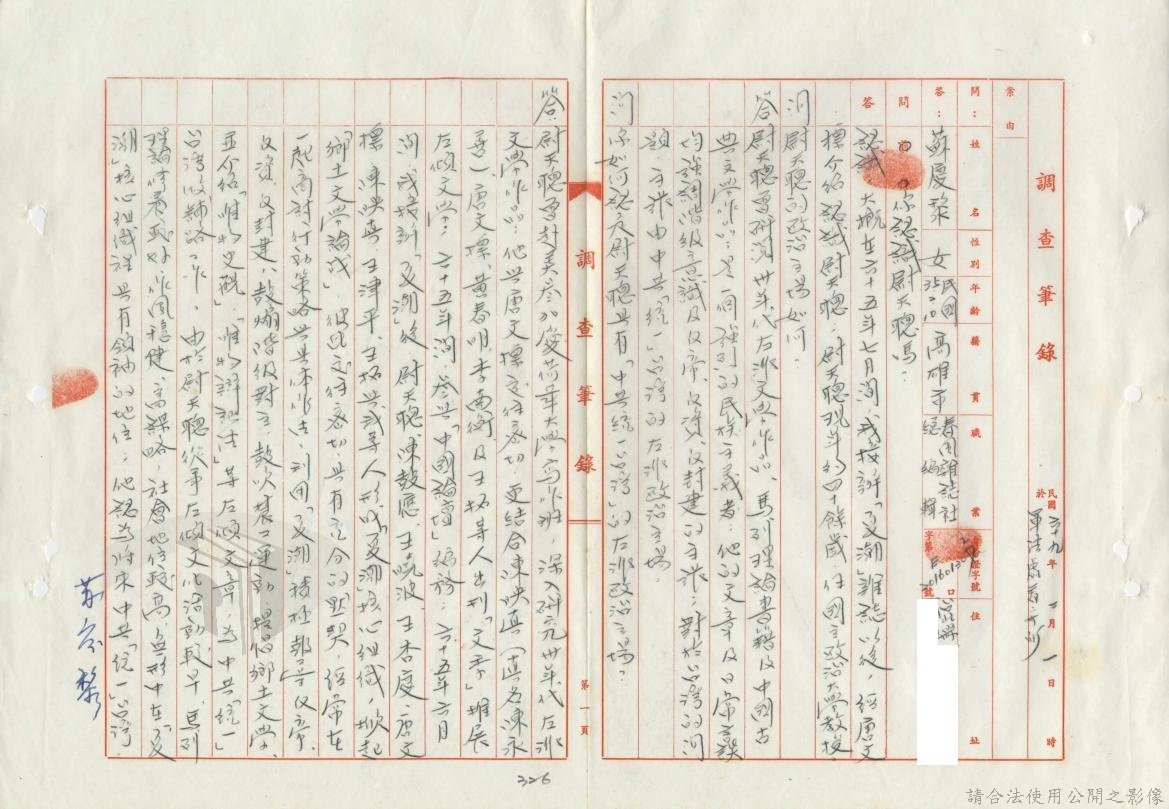 調查筆錄
民國六十九年一月一日 時
於軍法處看守所
案由
問：姓名 性別 年齡 籍貫 職業 身證字號 住址
答：蘇慶黎 女 民國35.7.10 高雄市 春風雜誌社總編輯 字第 號
問 你認識尉天聰嗎？
答 認識，大概在六十五年七月間，我接辦「夏潮」雜誌以後，經唐文
標介紹認識尉天聰，尉天聰現年約四十餘歲，任國立政治大學教授。
問 尉天聰的政治立場如何？
答 尉天聰曾研閱卅年代左派文學作品、馬列理論書籍及中國古
典文學作品，是一個強烈的民族主義者，他的文章及日常言談
均強調階級意識及反帝、反資、反封建的主張，對於台灣的問
題，主張由中共「統一」台灣的左派政治立場。
問 你如何認定尉天聰具有「中共統一台灣」的左派政治立場？
答 尉天聰曾赴美參加愛荷華大學寫作班，深入研究卅年代左派
文學作品，他與唐文標交往密切，更結合陳映真（真名陳永
善）、唐文標、黃春明、李南衡及王拓等人出刊「文季」推展
左傾文學，六十五年間，參與「中國論壇」編務，六十五年六月
間我接辦「夏潮」後，尉天聰、陳鼓應、王曉波、王杏慶、唐文
標、陳映真、王津平、王拓與我等人形成「夏潮」核心組織，掀起
「鄉土文學論戰」，彼此交往密切，具有充分的默契，經常在
一起商討行動策略與具體作法，利用「夏潮」積極報導反帝、
反資、反封建，鼓煽階級對立，鼓吹農工運動，提倡鄉土文學，
並介紹「唯物史觀」、「唯物辯証法」等左傾文章，為中共「統一」
台灣做鋪路工作，由於尉天聰從事左傾文化活動較早，馬列
理論修養較好，作風穩健、高謀略，社會地位較高，無形中在「夏
潮」核心組織裡具有領袖的地位，他認為將來中共「統一」台灣
蘇慶黎
調查筆錄
第一頁
326
請合法使用公開之影像